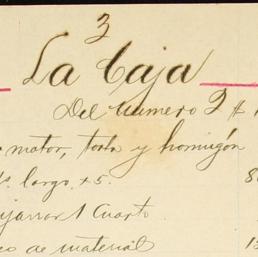 3
La Caja
Del Numero 2 #
motor, torta y hormigón
largo + 5. 8
1 Cuarto
de material 13